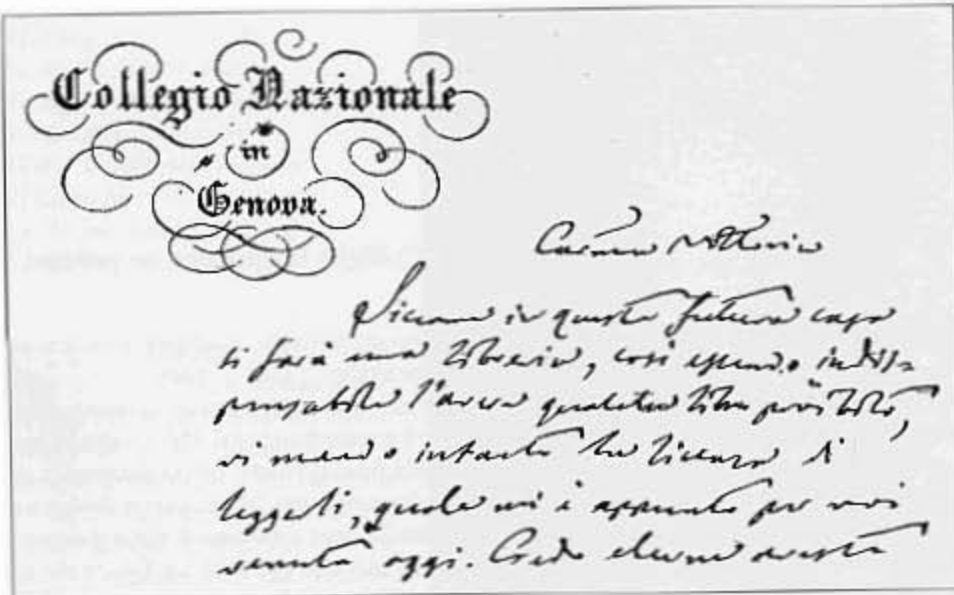 Collegio Nazionale
in
Genova.
Siccome in questa futura casa
si farà una libreria, così essendo indis=
pensabile l'avere qualche libro proibito,
vi mando intanto la licenza di
leggerli, quale mi è appunto per voi
venuta oggi. Credo che ne avesti